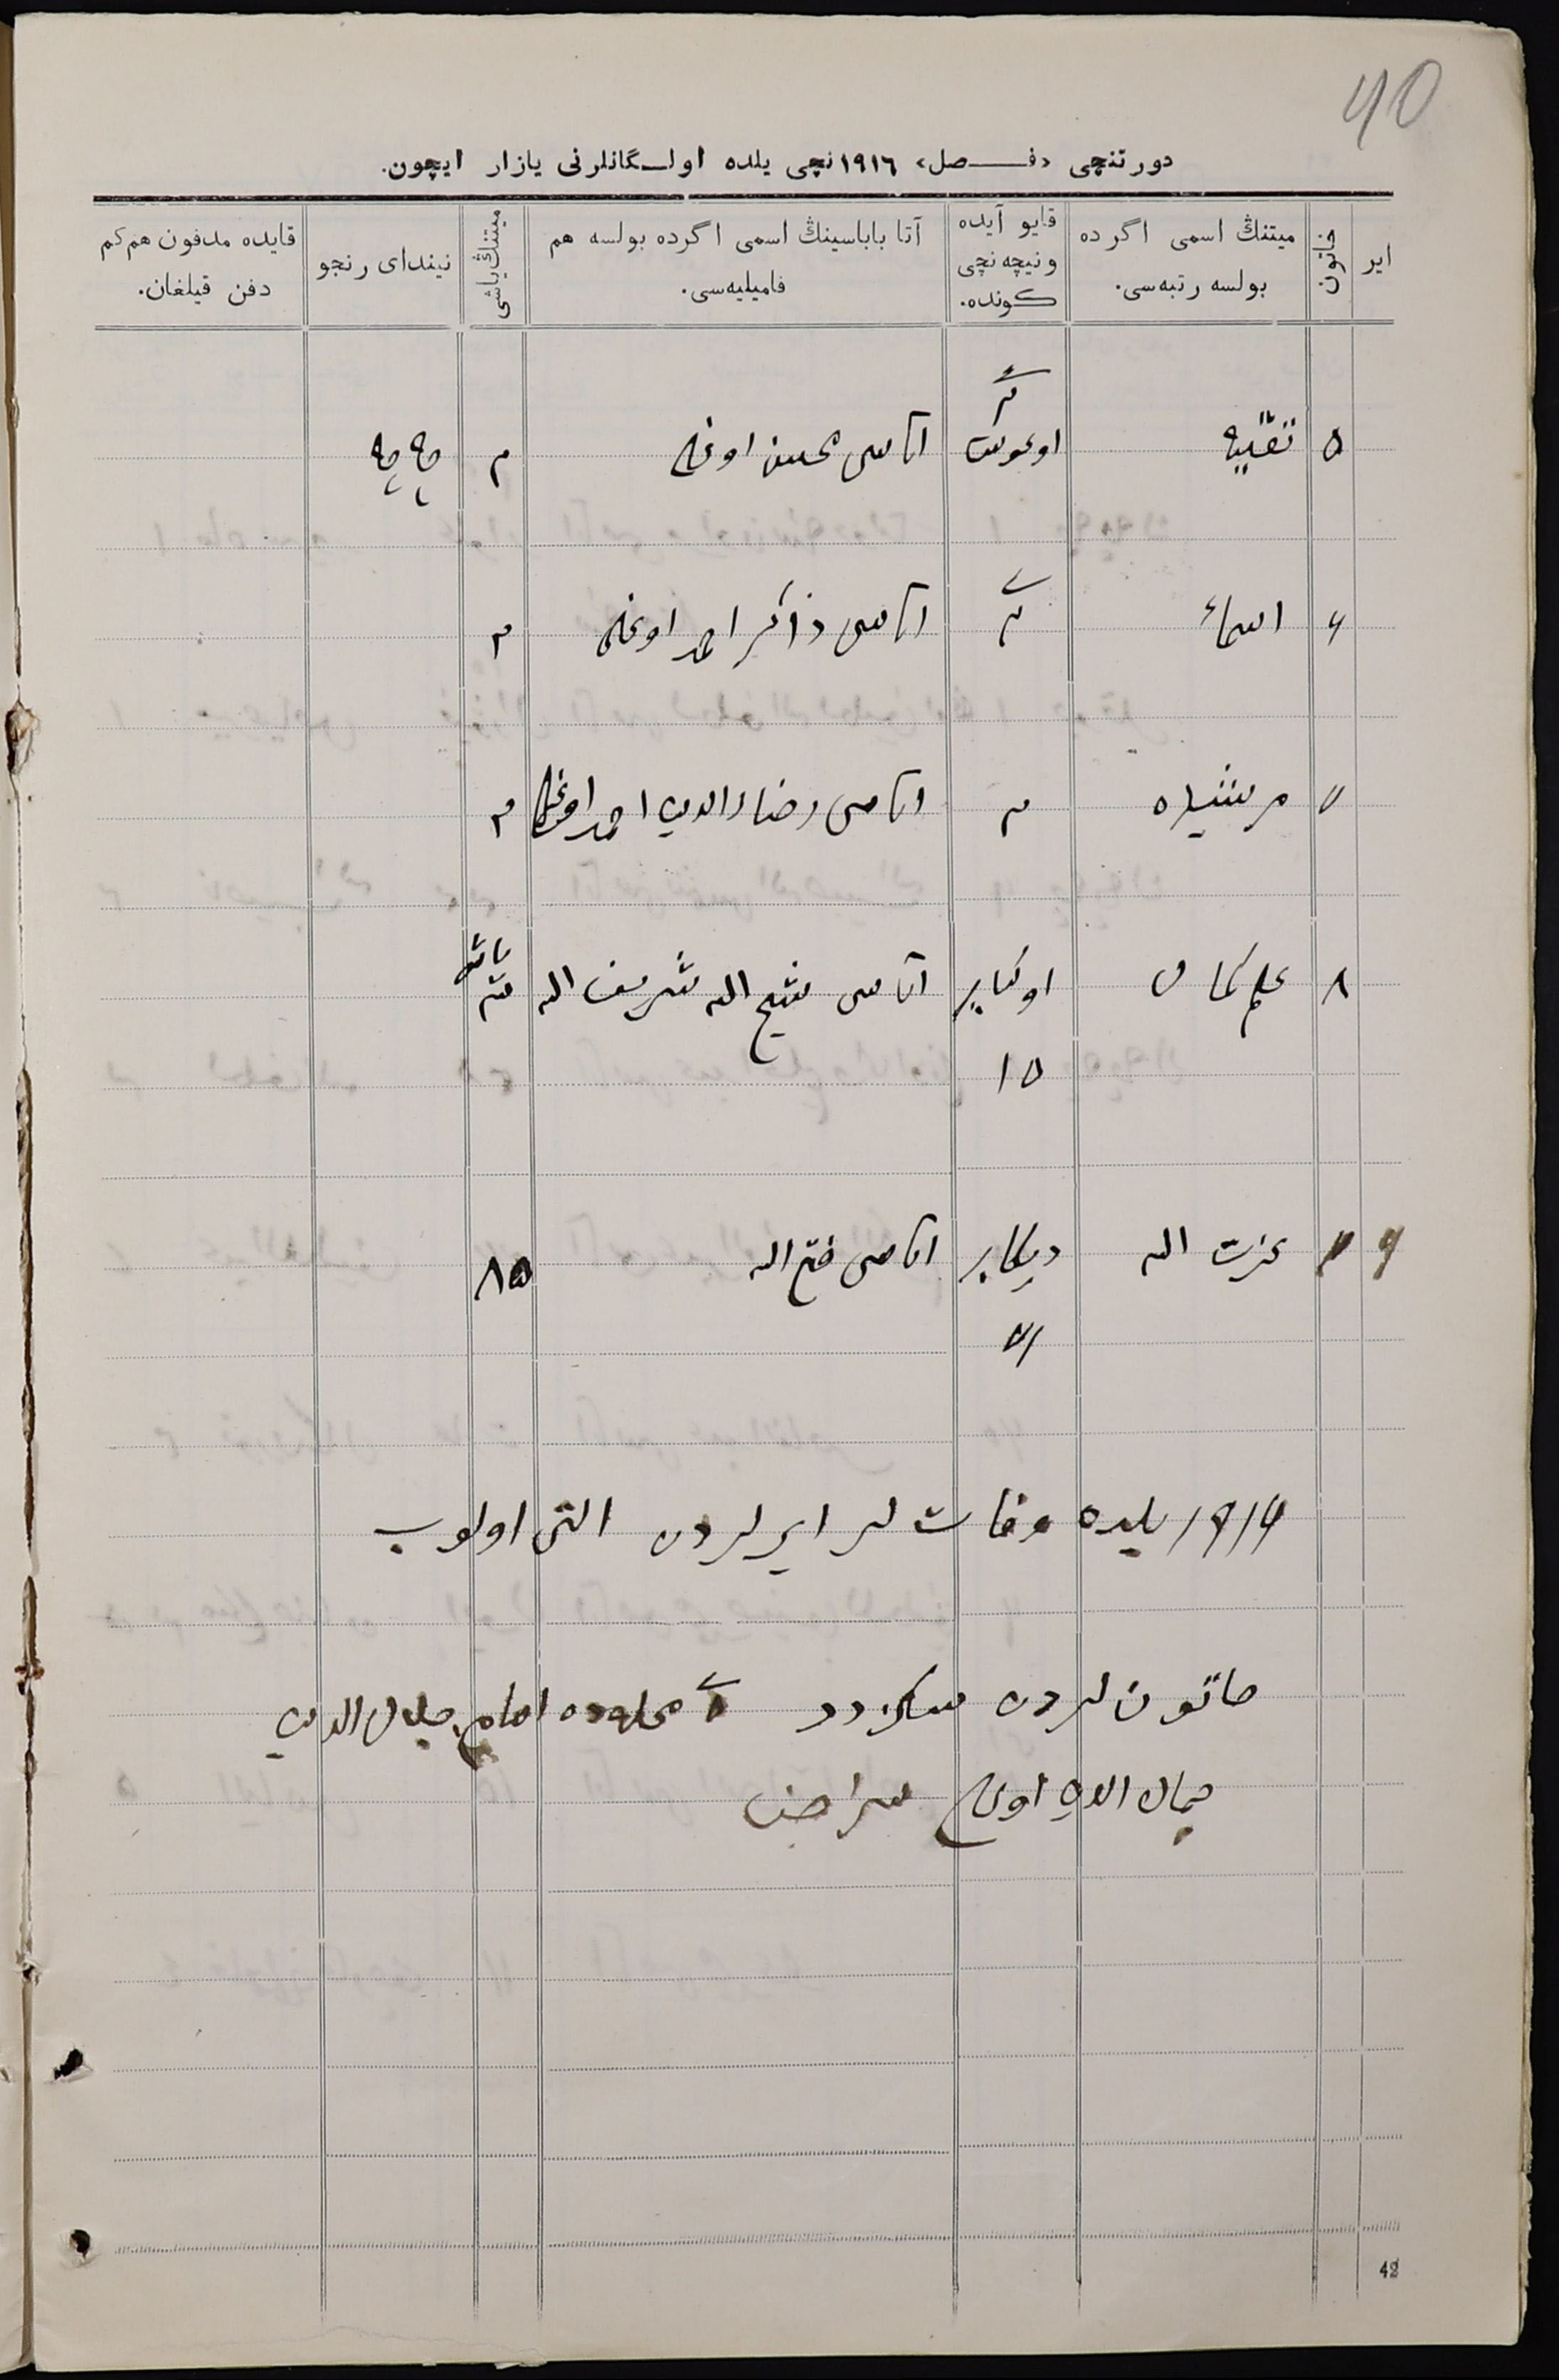 40
دورتنچی «فصل» ١٩١٦نچی یلده اولگانلرنی یازار ایچون.
ایر
خاتون
میتنڭ اسمی اگرده بولسه رتبه‌سی.
قایو آیده ونیچه نچی کونده.
آتا باباسینڭ اسمی اگرده بولسه هم فامیلیه‌سی.
میتنڭ یاشی
نیندای رنجو
قایده مدفون هم کم دفن قیلغان.
٥ تقیه اوغوست اتاسی محسن اوغلی م چاچاق
٦ اسماء اتاسی ذاکر احمد اوغلی ٣
٧ مرشیده م اتاسی رضاءالدین احمد اوغلی ٣
٨ علم کمال اوکتابر اتاسی شیخ الله شریف الله
١٥
٦ عزت الله دیکابر اتاسی فتح الله ٨٥
١٩١٦ یلده وفات لر ایرلردن التی اولوب
خاتون لردن سکزدر محله‌ده امام جلال الدین
جمال الدین اوغلی
42